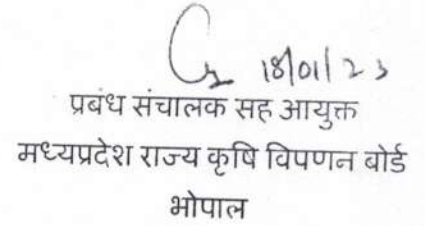 18/01/23
प्रबंध संचालक सह आयुक्त
मध्यप्रदेश राज्य कृषि विपणन बोर्ड
भोपाल